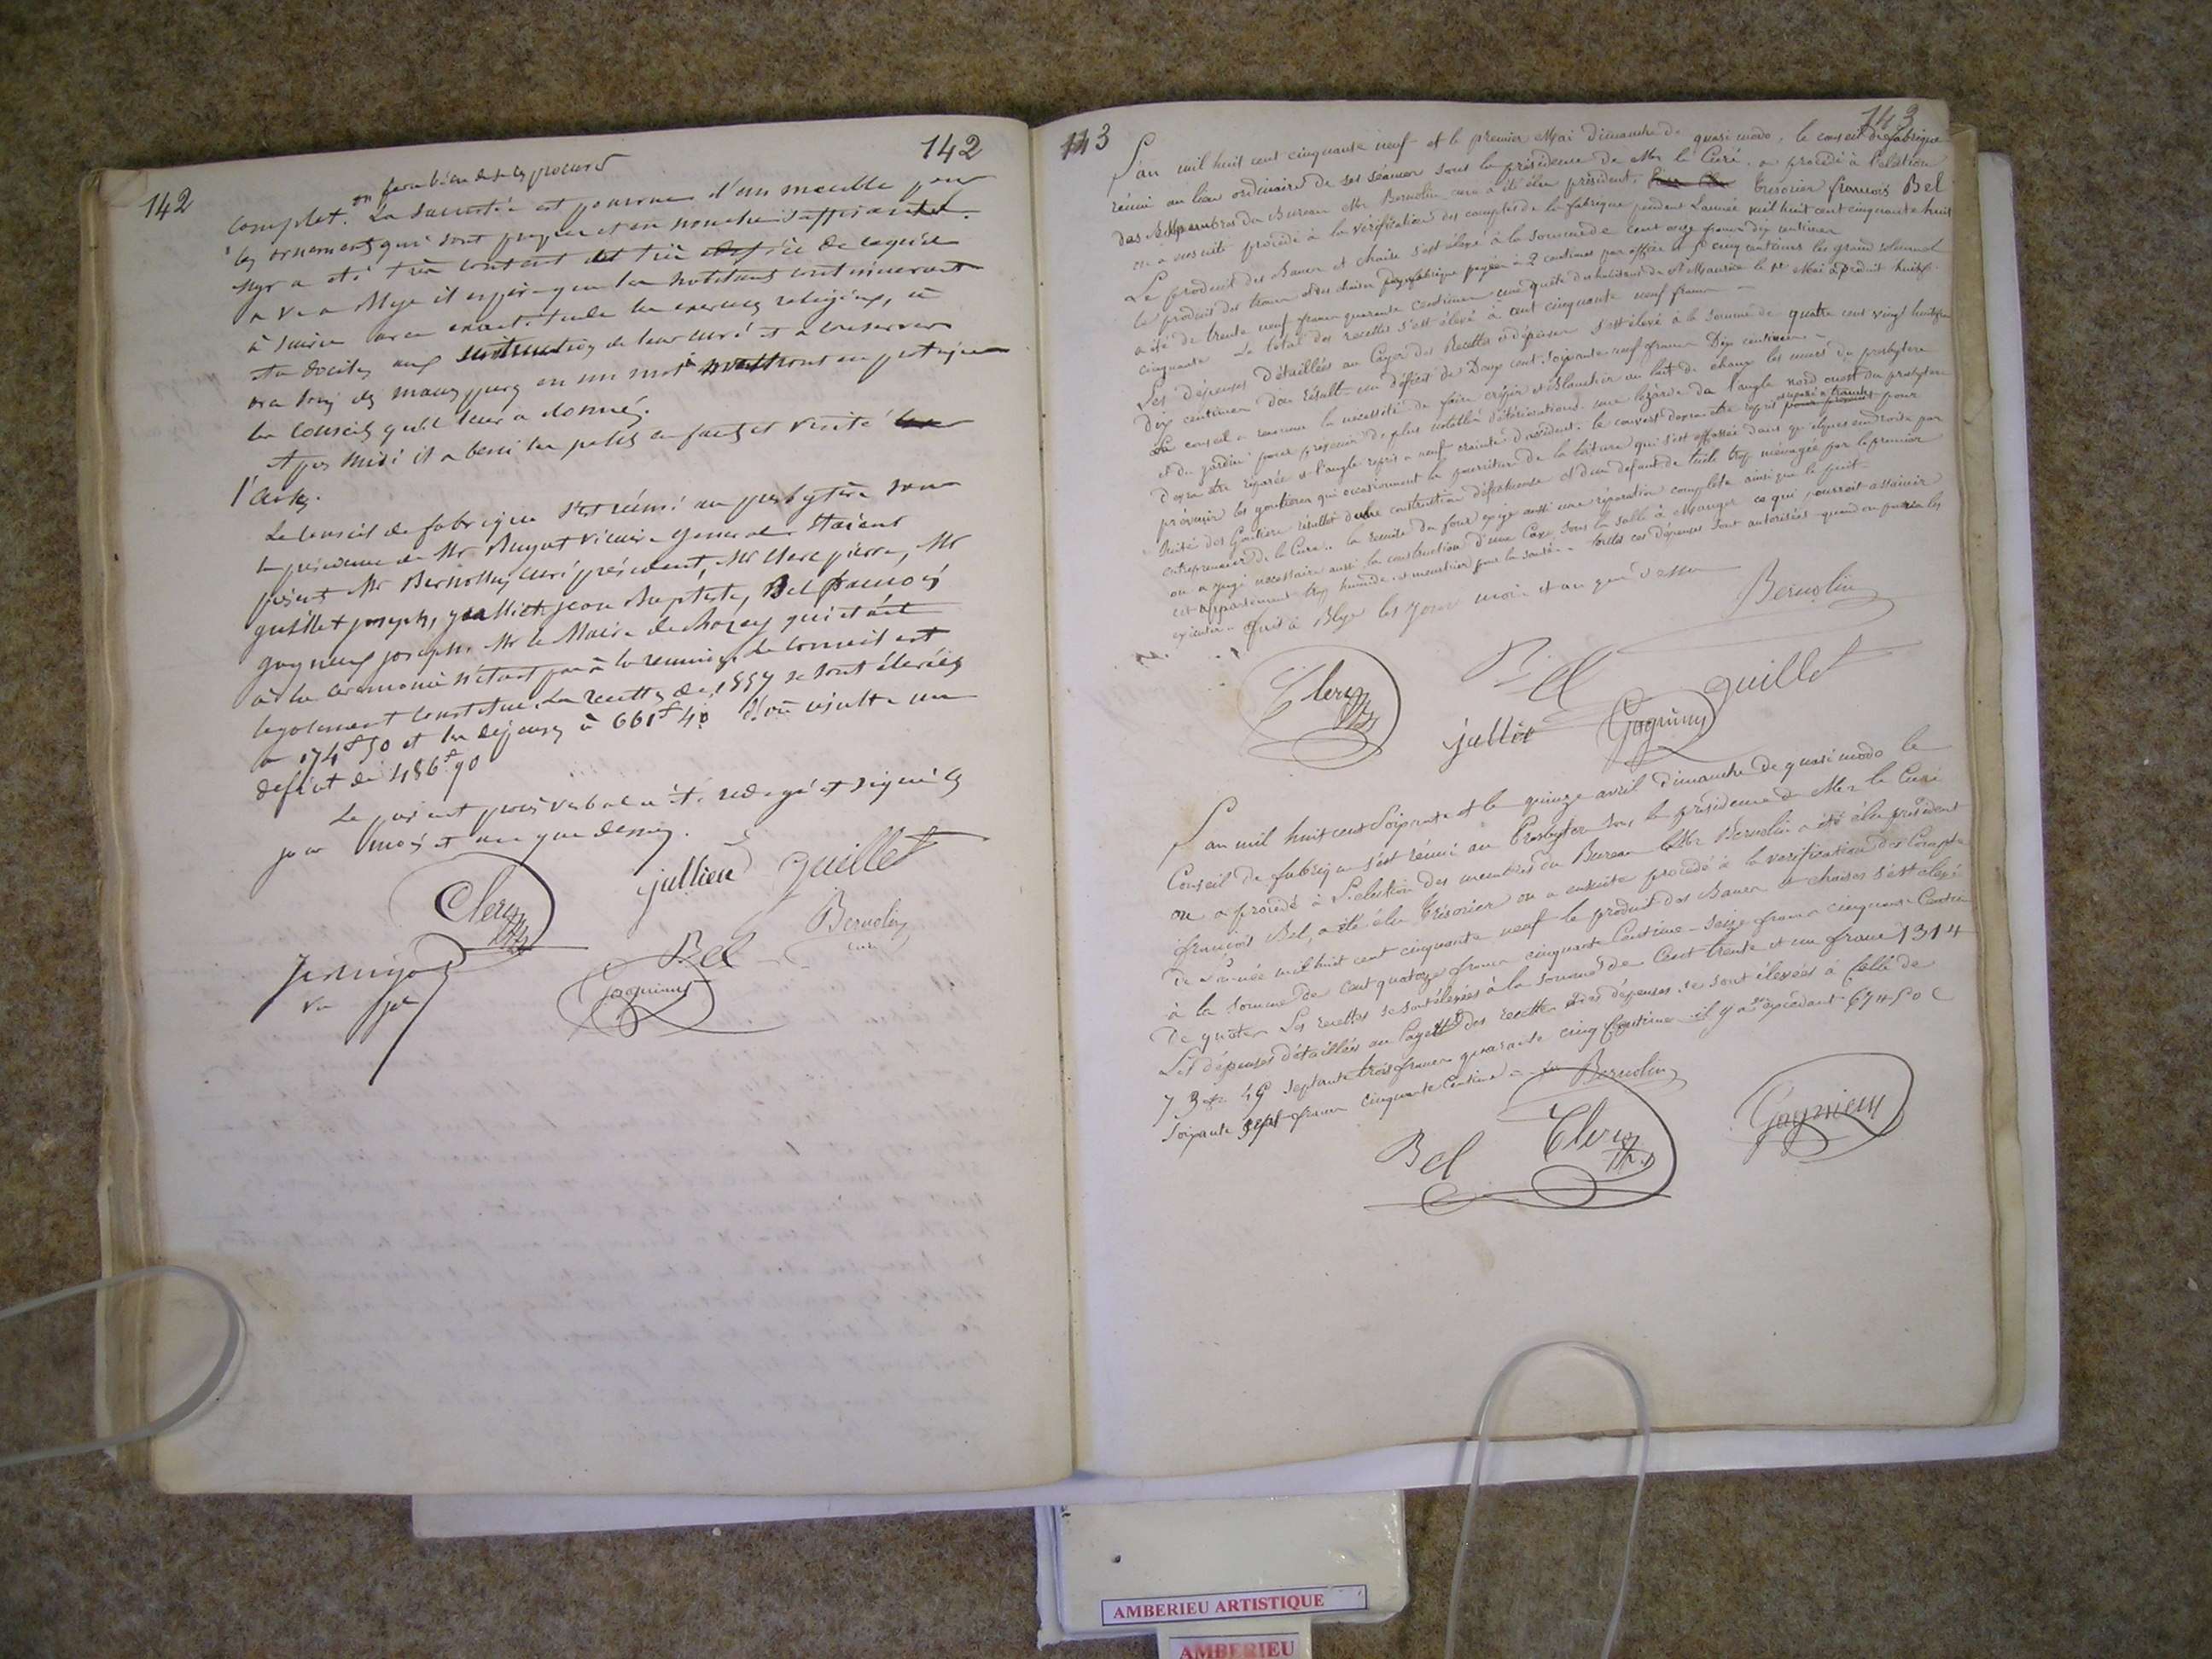 142
142
on fera bien de se les procurer
complet. La Sacristie est pourvue d'un meuble pour
les ornements qui sont propres et en nombre suffisant.
Mgr a été très content et très
a vu a Blye il espère que les habitants continueront
à suivre avec exactitude les exercices religieux, à
être dociles aux instructions de leur curé et a conserver
en un mot à mettront en pratique
les conseils qu'il leur a donnés.
Après Midi il a beni les petits enfants et visité
l'école.
Le conseil de fabrique s'est réuni au presbytère sous
la présidence de Mr Buyat Vicaire General. Etaient
présents Mr Bernollin curé président, Mr Clerc pierre, Mr
guillet joseph, jullien jean Baptiste, Bel françois
gagneux joseph. Mr le Maire de Chazey qui était
à la cérémonie n'étant pas à la reunion. Le conseil est
legalement constitué. Les recettes de 1857 se sont élevées
a 174f 50 et les dépenses à 661f 40 d'où résulte un
deficit de 486f 90
Le présent procès verbal a été redigé et signé les
jour mois et an que dessus.
Clerc
jullien
guillet
Bernolin
curé
Bel
gagneux
143
143
L'an mil huit cent cinquante neuf et le premier Mai dimanche de quasi modo, le conseil de fabrique
réuni au lieu ordinaire de ses séances sous la présidence de Mr le Curé a procédé à l'élection
des Membres du Bureau Mr Bernolin curé a été élu président. trésorier françois Bel
on a ensuite procédé à la vérification des comptes de la fabrique pendant l'année mil huit cent cinquante huit
Le produit des Bancs et chaises s'est élevé à la somme de cent onze francs dix centimes
le produit des bancs et des chaises fabrique payées à 2 centimes par office et 5 cinq centimes les grand solennel
a été de trente neuf francs quarante centimes une quête des habitants de St Maurice le 1er Mai a produit huit f
cinquante. Le total des recettes s'est élevé à cent cinquante neuf francs
Les dépenses détaillées au cayer des Recettes et dépenses s'est élevé à la somme de quatre cent vingt huit f
Dix centimes d'ou résulte un déficit de Deux cent soixante neuf francs Dix centimes
Le conseil a reconnu la necessité de faire crépir et blanchir au lait de chaux les murs du presbytere
et du jardin pour prévenir de plus notables détériorations. une lézarde de l'angle nord ouest du presbytere
devra être réparée et l'angle repris a neuf crainte d'accident. le couvert devra être repris pour
prévenir les goutieres qui occasionnent la pourriture de la toiture qui s'est affaissée dans quelques endroits par
suite des Goutiere résultat d'une construction défectueuse et d'un defaut de tuile trop ménagée par le premier
entrepreneur de la Cure. la du four exige aussi une réparation complete ainsi que le puit
on a jugé nécessaire aussi la construction d'une Cave sous la salle à Manger ce qui pourrait assainir
cet appartement trop humide et meurtrier pour la santé. toutes ces dépenses sont autorisées quand on pourra les
exécuter. fait à Blye les jour mois et an que dessus
Bernolin
Clerc
Bel
guillet
jullien
Gagneux
L'an mil huit cent Soixante et le quinze avril dimanche de quasi modo le
Conseil de fabrique s'est réuni au Presbytere sous la présidence de Mr le Curé
on a procédé à l'élection des membres du Bureau Mr Bernolin a été élu président
françois Bel, a été élu trésorier on a ensuite procédé à la vérification des Compte
De l'année mil huit cent cinquante neuf le produit des Bancs et chaises s'est elevé
à la somme de cent quatorze francs cinquante Centime - seize francs cinquante Centime
De quêtes Les recettes se sont élevées à la somme de Cent trente et un franc 131 f
Les dépenses détaillées au Cayer des recettes et des dépenses se sont élevées à Celle de
73 fr 45 septante trois francs quarante cinq Centime il y a excédant 67 f 50 c
Soixante sept francs cinquante Centime
Bernolin
Bel
Clerc
Gagneux
AMBERIEU ARTISTIQUE
AMBERIEU